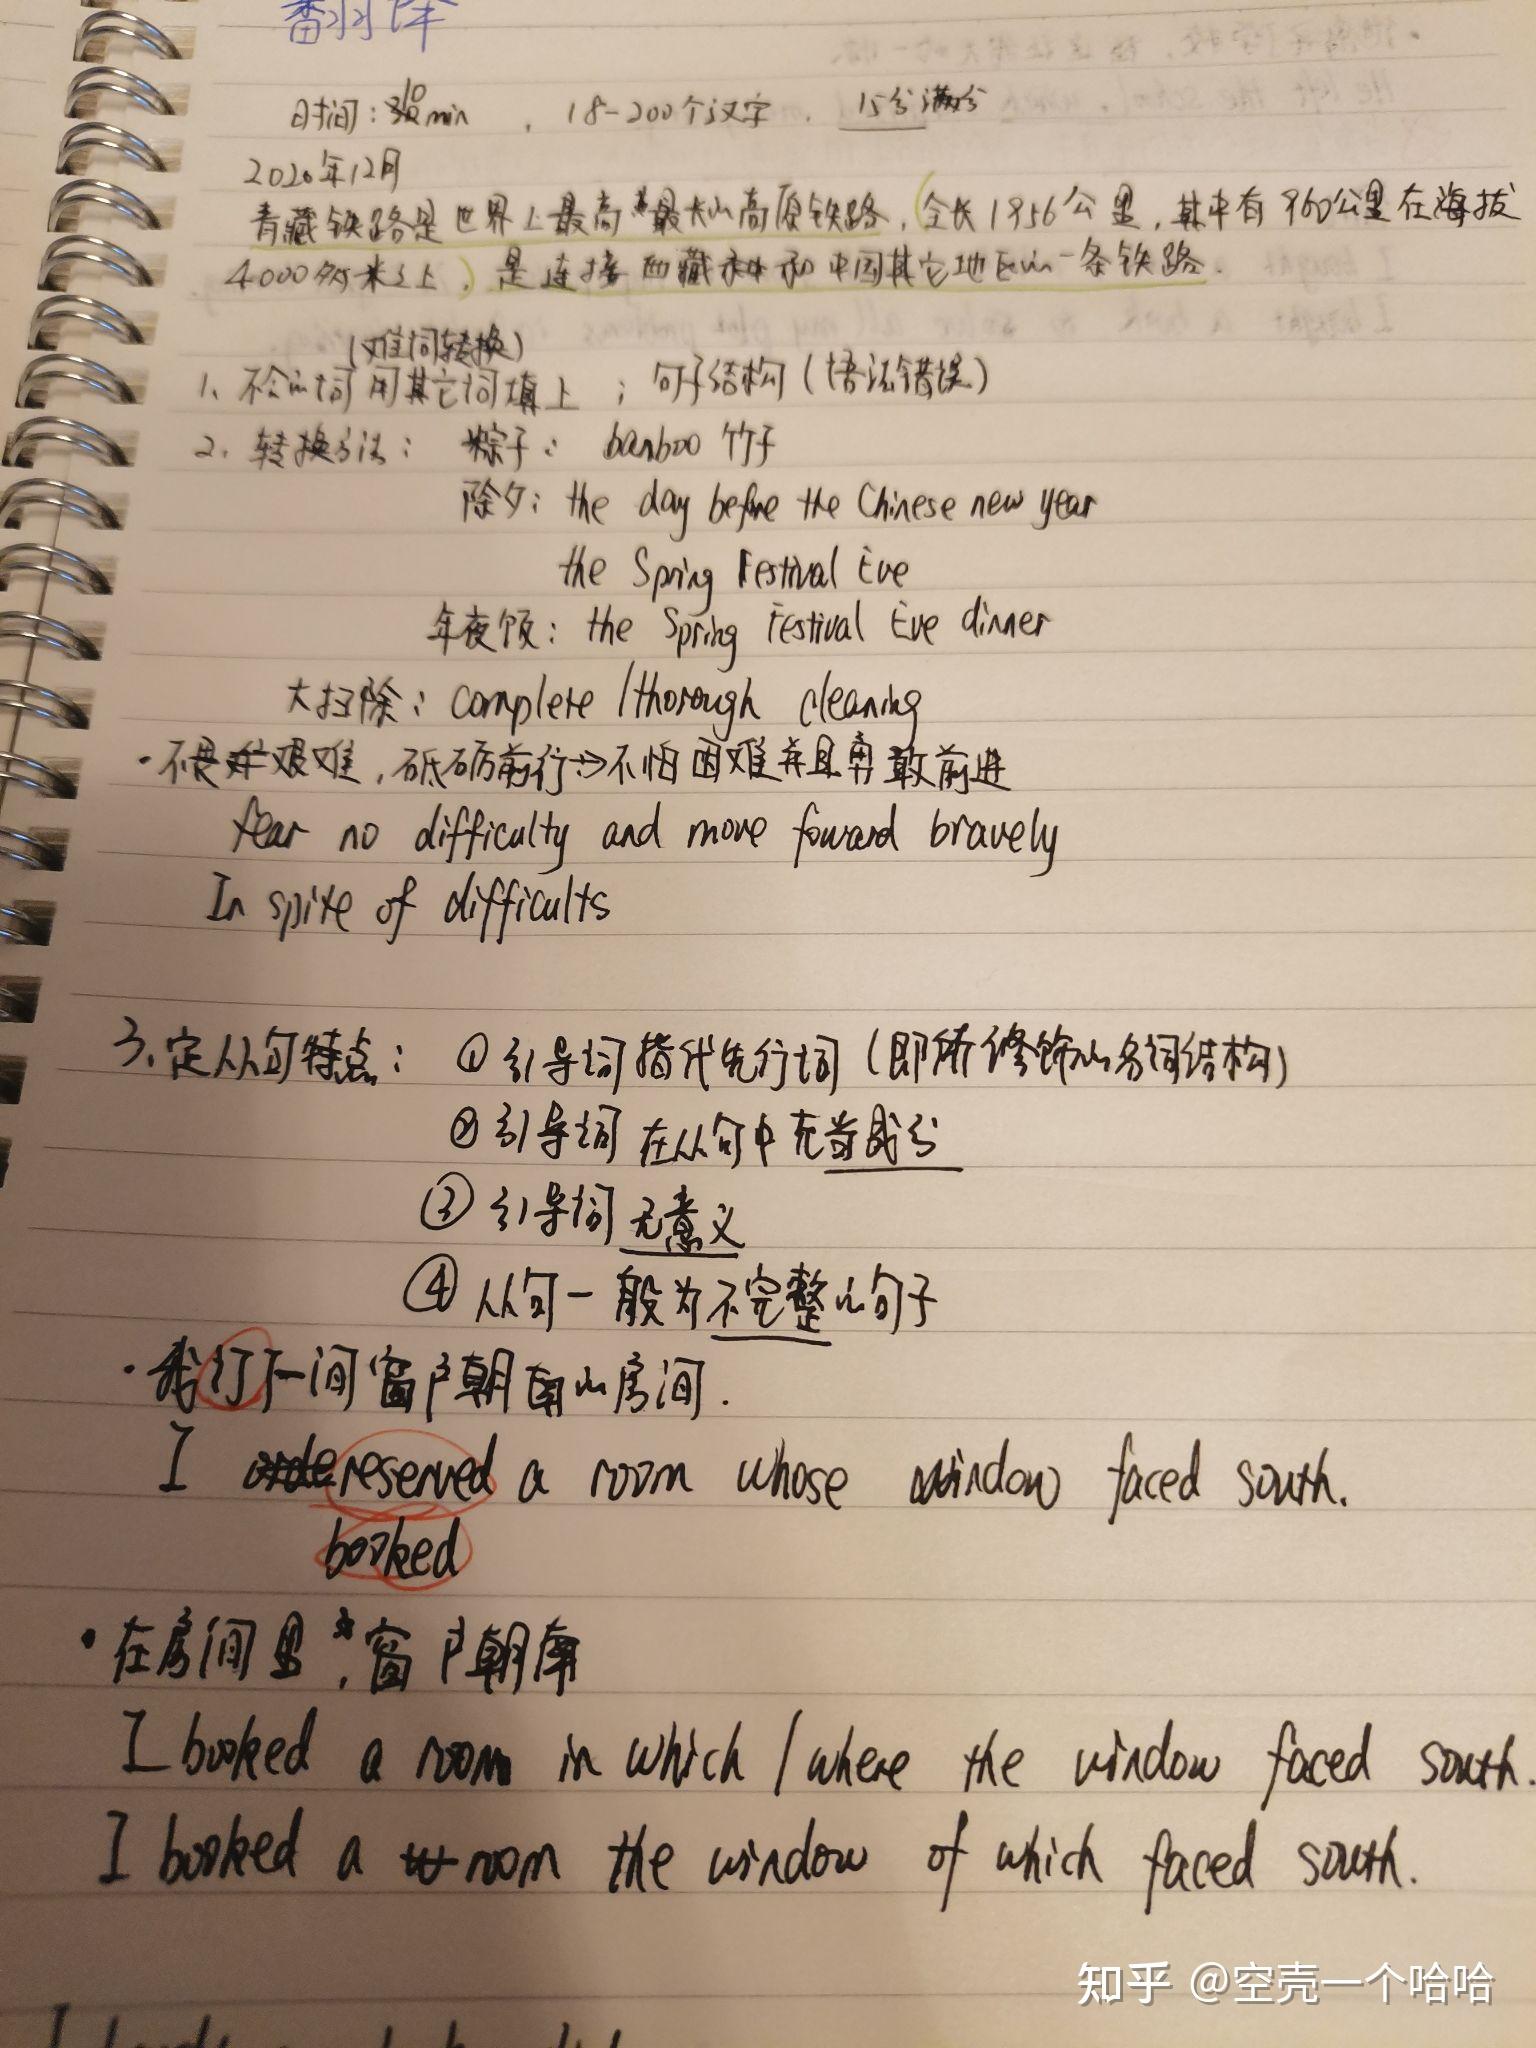 翻译
时间:30min , 18-200个汉字 , 15分满分
2020年12月
青藏铁路是世界上最高最长的高原铁路,(全长1956公里,其中有960公里在海拔
4000多米之上),是连接西藏和中国其它地区的一条铁路.
(难词转换)
1、不会的词用其它词填上 ; 句子结构(语法错误)
2、转换方法: 粽子: banboo 竹子
除夕: the day before the Chinese new year
the Spring Festival Eve
年夜饭: the Spring Festival Eve dinner
大扫除: complete / thorough cleaning
·不畏艰难,砥砺前行→不怕困难并且勇敢前进
fear no difficulty and move foward bravely
In spite of difficults
3、定从句特点: ①引导词指代先行词(即所修饰的名词结构)
②引导词在从句中充当成分
③引导词无意义
④从句一般为不完整的句子
·我订了一间窗户朝南的房间.
I reserved a room whose window faced south.
booked
·在房间里,窗户朝南
I booked a room in which / where the window faced south.
I booked a room the window of which faced south.
知乎 @空壳一个哈哈